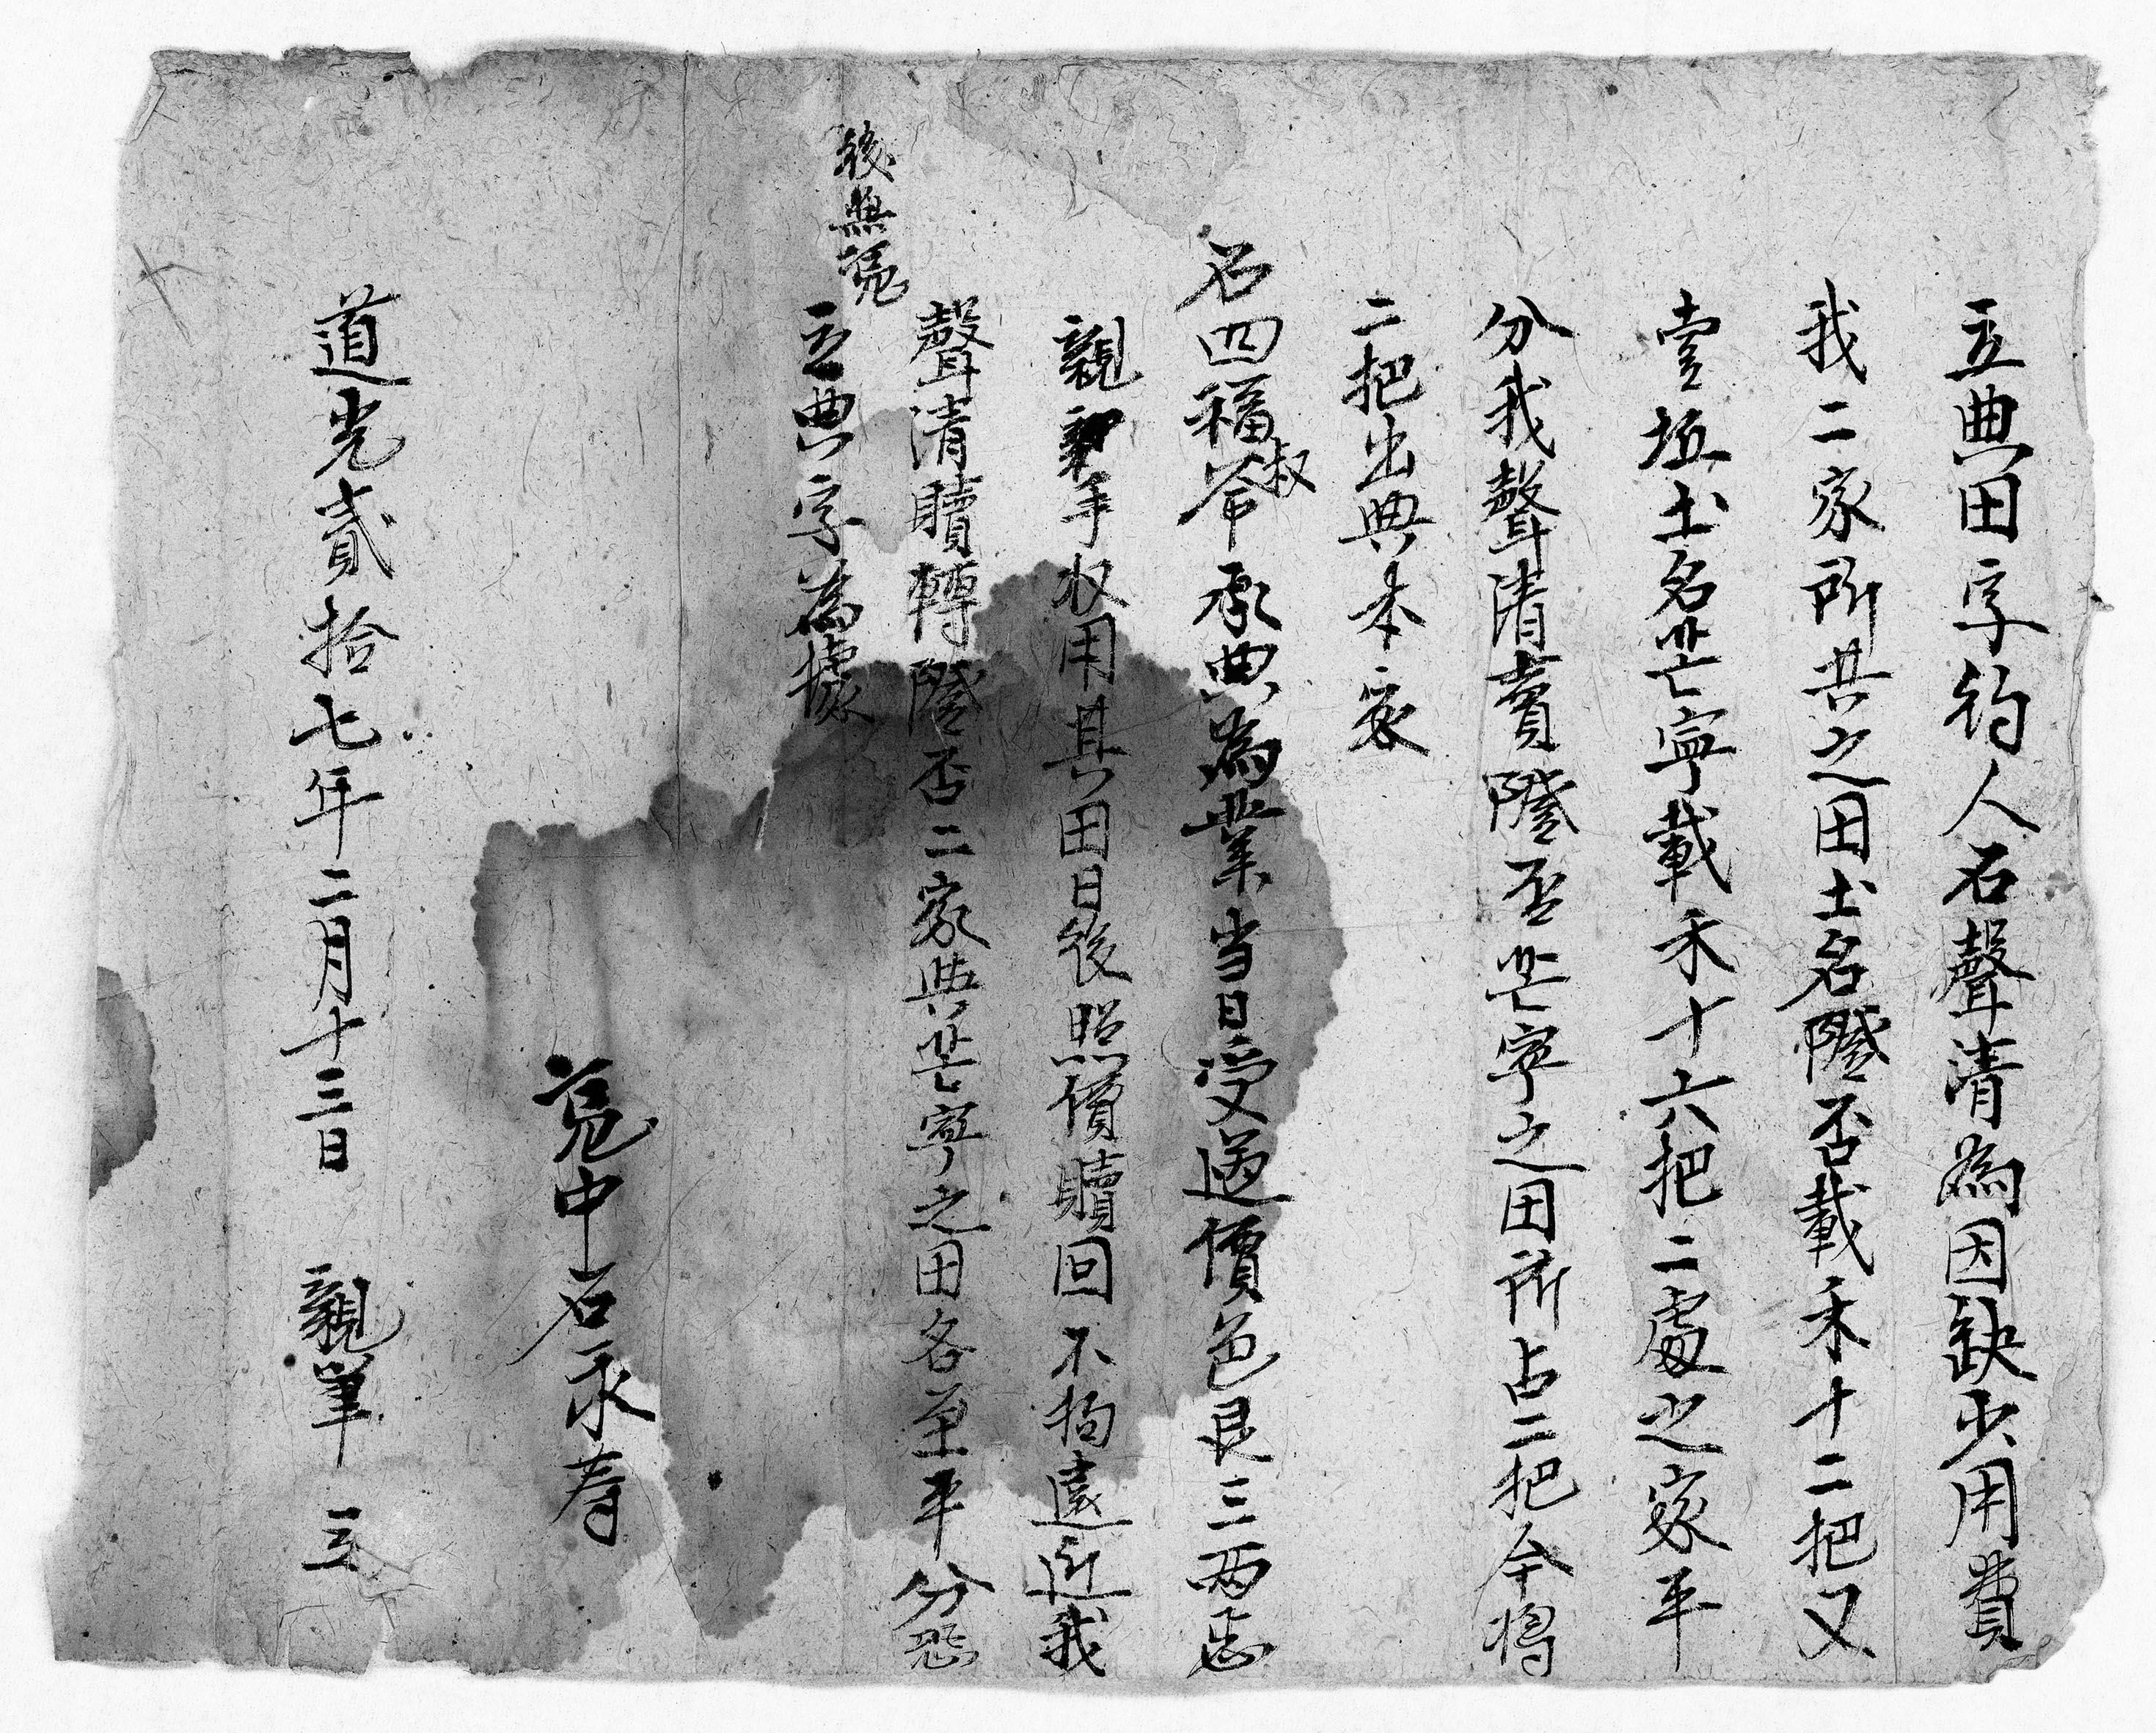 立典田字約人石聲清為因缺少用費
我二家所共之田土名隥否載禾十二把又
壹坵土名芒寧載禾十六把二處之家平
分我聲清賣隥否芒寧之田所占二把今將
二把出典本家
石四福爷叔承典為業当日受過價色艮三两正
親手收用其田日後照價贖回不拘遠近我
聲清贖轉隥否二家典芒寧之田各至平分恐
後無凴
立典字為據
凴中石永壽
道光貳拾七年二月十三日 親筆 立